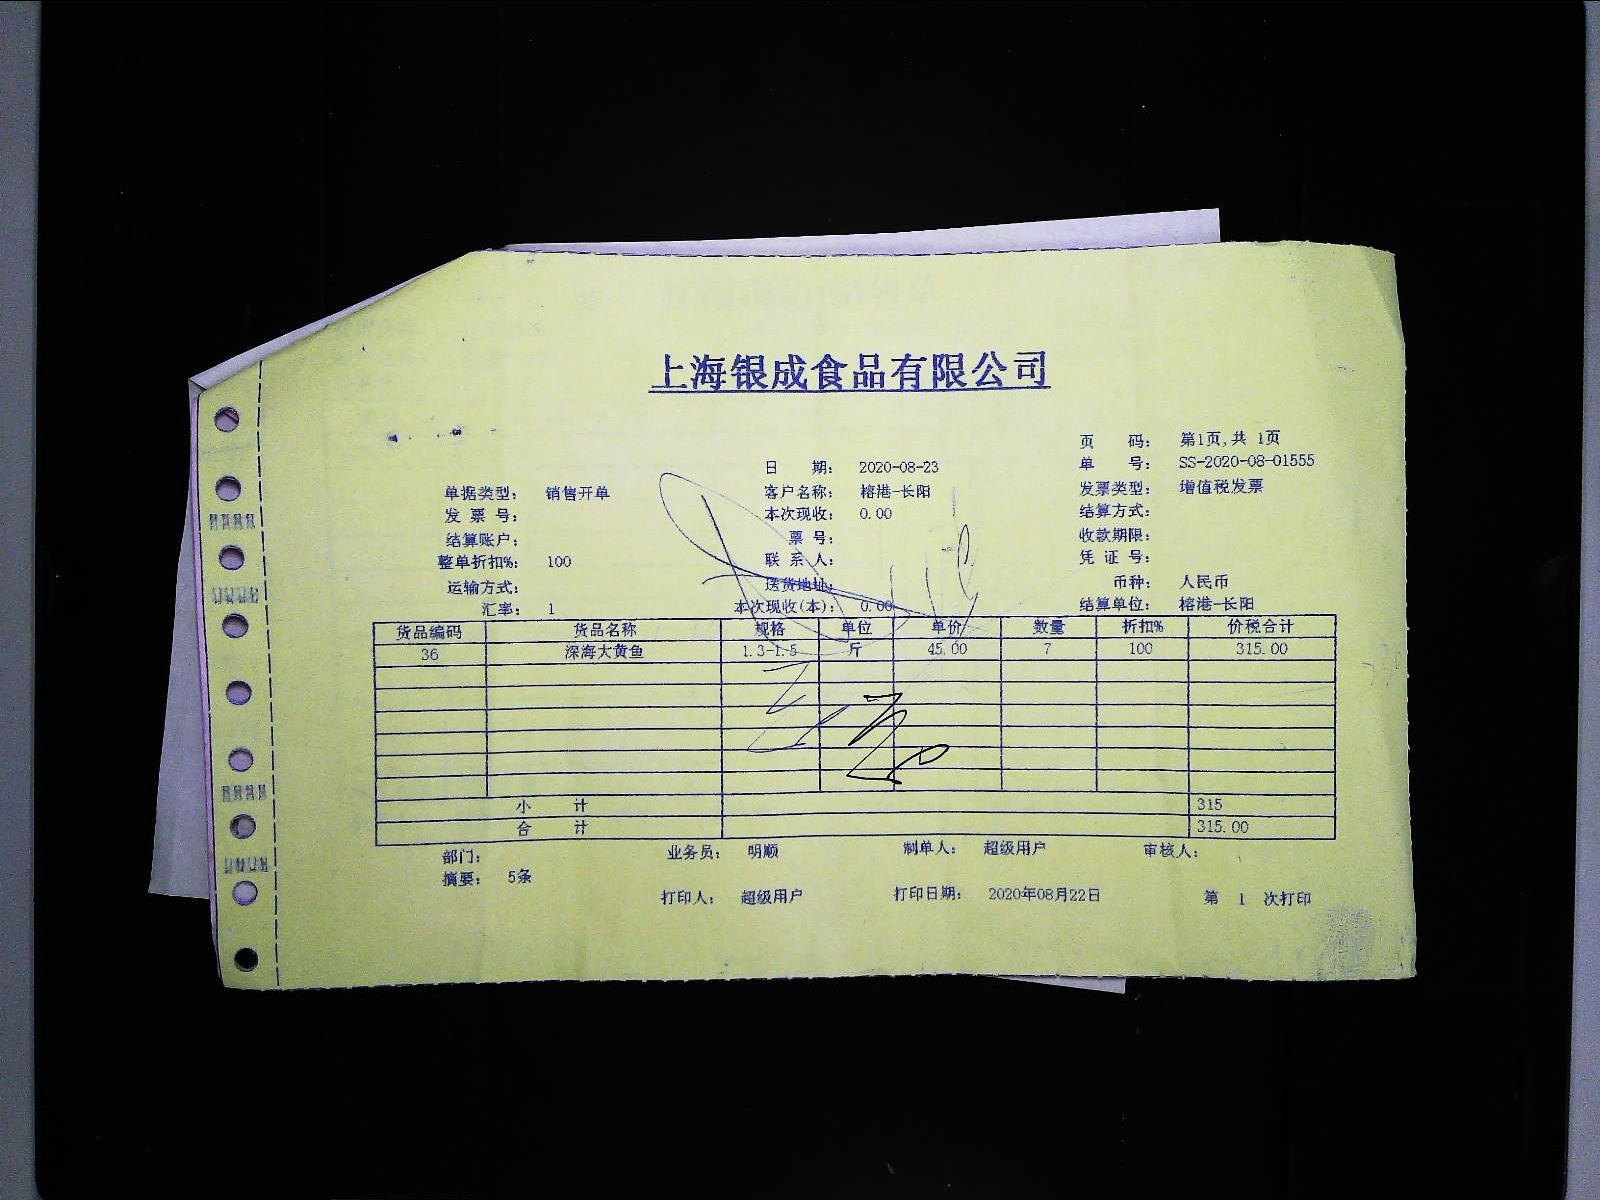 上海银成食品有限公司
页 码： 第1页,共 1页
日 期： 2020-08-23 单 号： SS-2020-08-01555
单据类型： 销售开单 客户名称： 榕港-长阳 发票类型： 增值税发票
发 票 号： 本次现收： 0.00 结算方式：
结算账户： 票 号： 收款期限：
整单折扣%： 100 联 系 人： 凭 证 号：
运输方式： 送货地址： 币种： 人民币
汇率： 1 本次现收(本)： 0.00 结算单位： 榕港-长阳
货品编码 货品名称 规格 单位 单价 数量 折扣% 价税合计
36 深海大黄鱼 1.3-1.5 斤 45.00 7 100 315.00
小 计 315
合 计 315.00
部门： 业务员： 明顺 制单人： 超级用户 审核人：
摘要： 5条
打印人： 超级用户 打印日期： 2020年08月22日 第 1 次打印